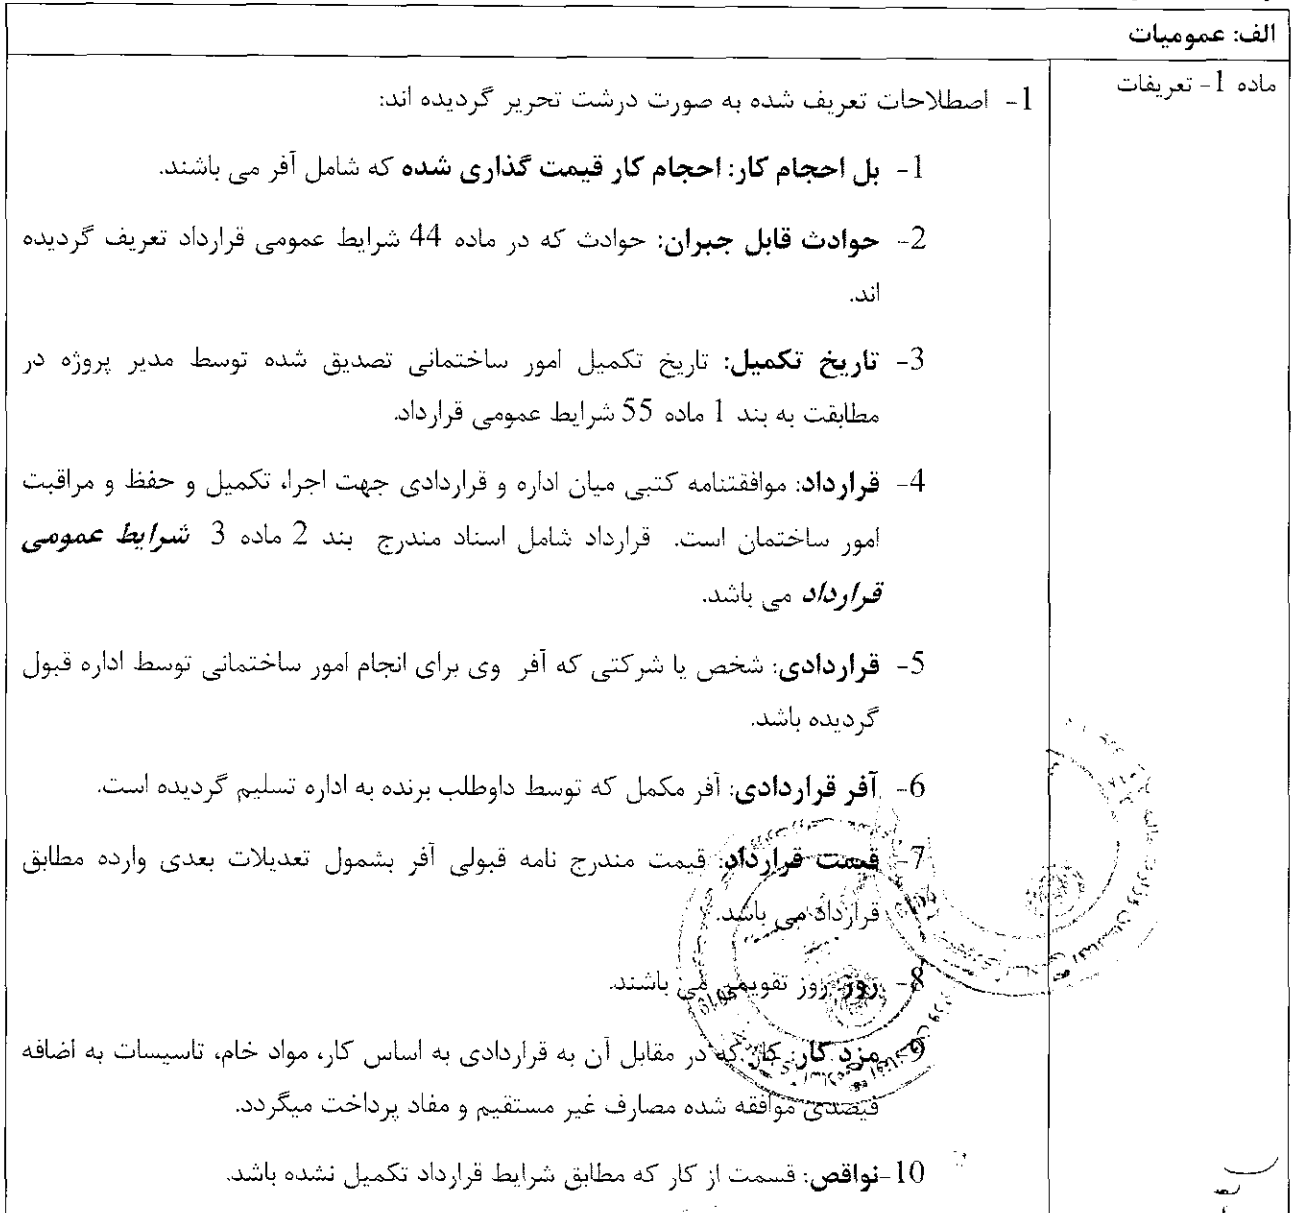 الف: عمومیات
ماده 1- تعریفات
1- اصطلاحات تعریف شده به صورت درشت تحریر گردیده اند:
1- بل احجام کار: احجام کار قیمت گذاری شده که شامل آفر می باشند.
2- حوادث قابل جبران: حوادث که در ماده 44 شرایط عمومی قرارداد تعریف گردیده
اند.
3- تاریخ تکمیل: تاریخ تکمیل امور ساختمانی تصدیق شده توسط مدیر پروژه در
مطابقت به بند 1 ماده 55 شرایط عمومی قرارداد.
4- قرارداد: موافقتنامه کتبی میان اداره و قراردادی جهت اجرا، تکمیل و حفظ و مراقبت
امور ساختمان است. قرارداد شامل اسناد مندرج بند 2 ماده 3 شرایط عمومی
قرارداد می باشد.
5- قراردادی: شخص یا شرکتی که آفر وی برای انجام امور ساختمانی توسط اداره قبول
گردیده باشد.
6- آفر قراردادی: آفر مکمل که توسط داوطلب برنده به اداره تسلیم گردیده است.
7- قیمت قرارداد: قیمت مندرج نامه قبولی آفر بشمول تعدیلات بعدی وارده مطابق
قرارداد می باشد.
8- روز: روز تقویمی می باشند.
9- مزد کار: کار که در مقابل آن به قراردادی به اساس کار، مواد خام، تاسیسات به اضافه
فیصدی موافقه شده مصارف غیر مستقیم و مفاد پرداخت میگردد.
10-نواقص: قسمت از کار که مطابق شرایط قرارداد تکمیل نشده باشد.